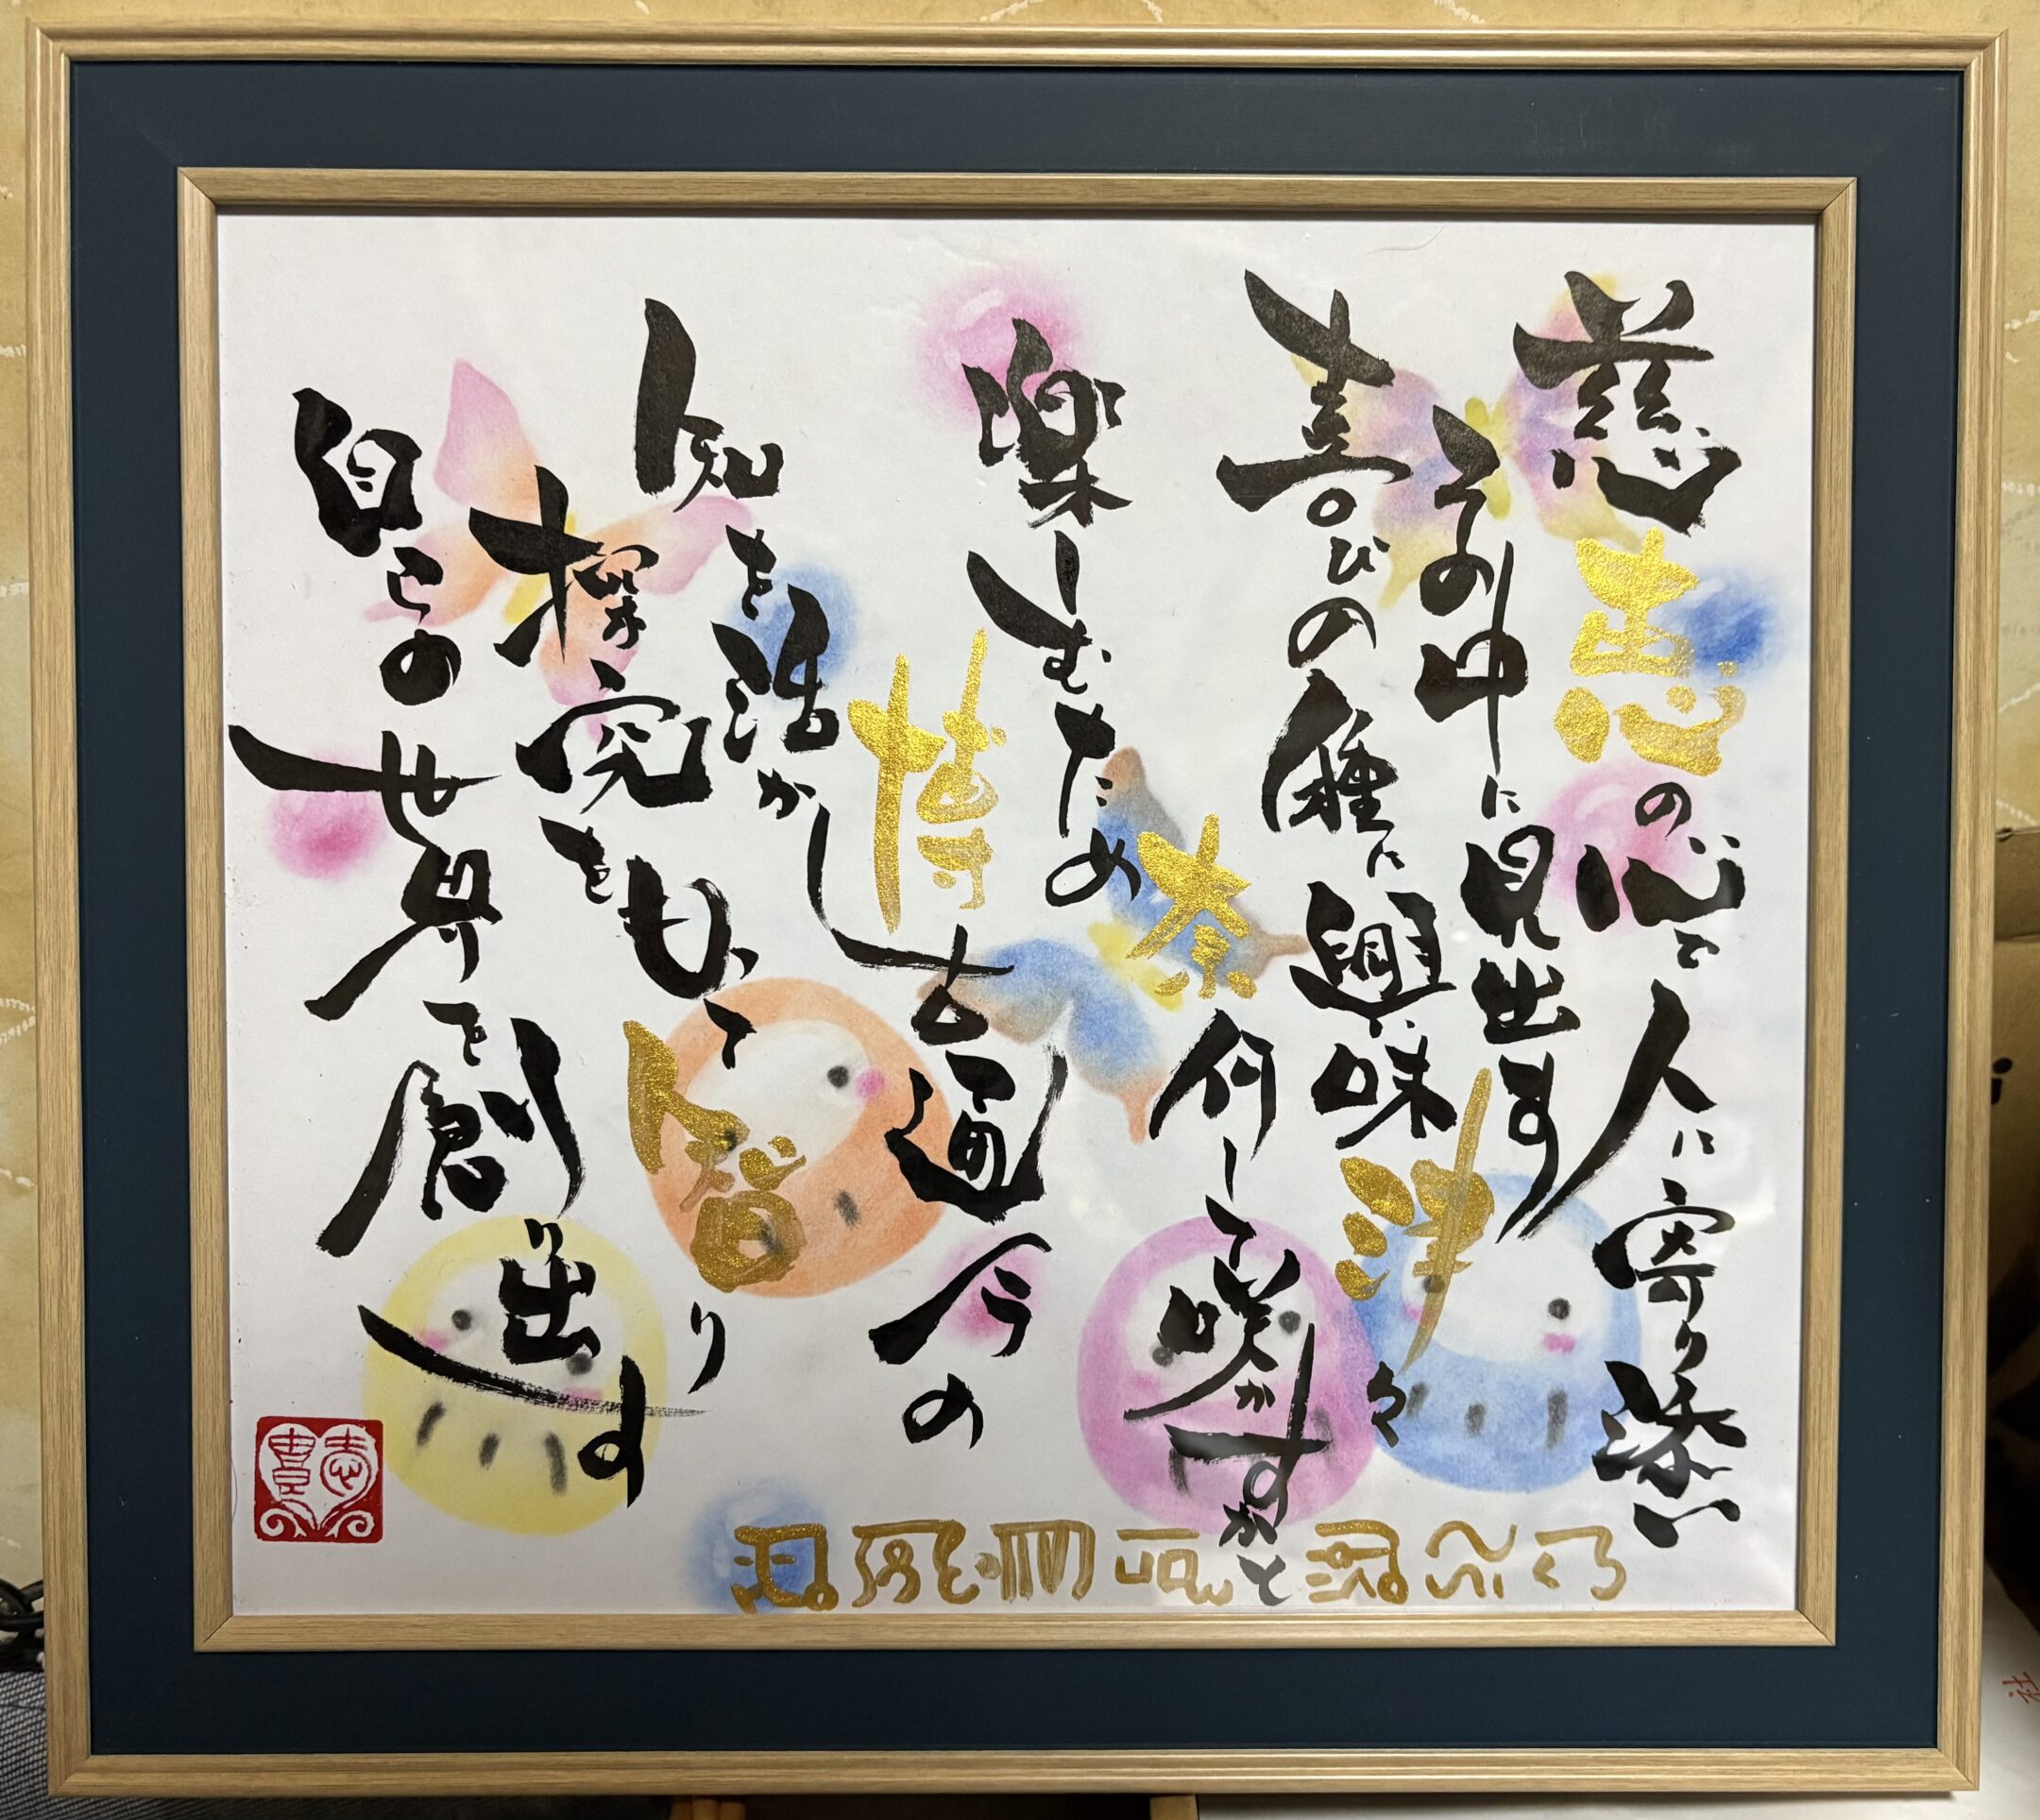 慈恵の心で人に寄り添い
その中に見出す
喜びの種に興味津々
楽しむため奈何して咲かすかと
知を活かし博古通今の
探究をもって智り
自らの世界を創り出す